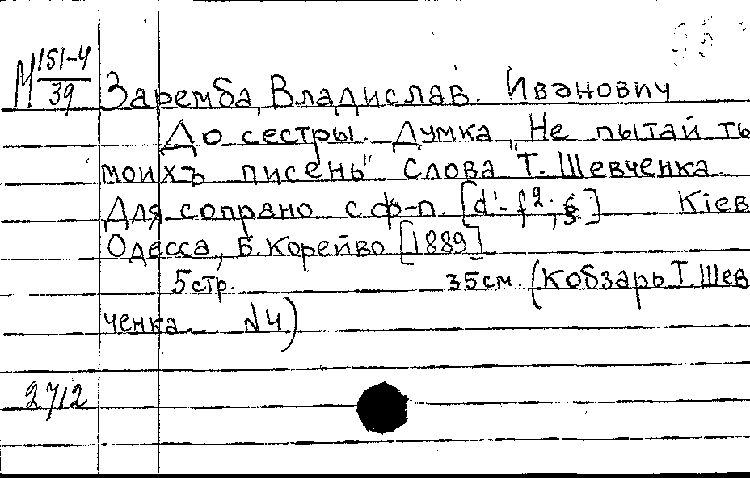 М 151-4
39
Заремба, Владислав. Иванович
До сестры. Думка „Не пытай ты
моихъ писень" Слова Т. Шевченка.
Для сопрано с ф-п. [d¹-f²; ] Кіев
Одесса, Б. Корейво [1889]
5 стр. 35 см. (Кобзарь Т. Шев
ченка. №4.)
2712